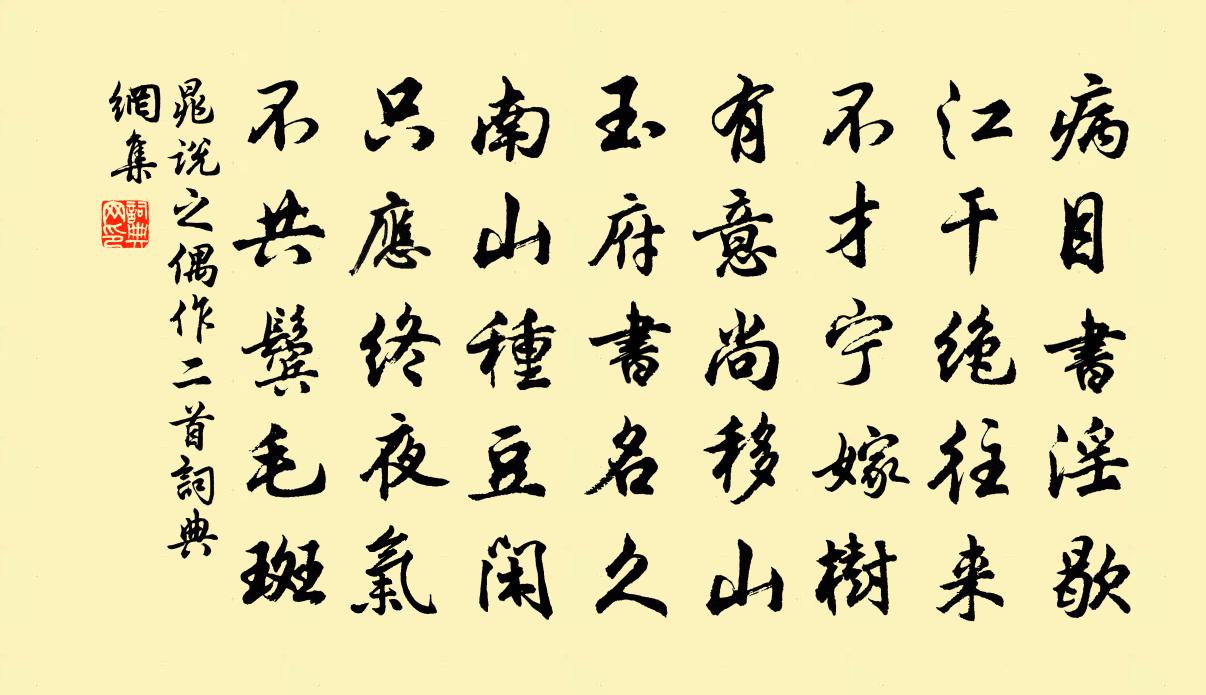 病目書淫歇
江干绝往来
不才宁嫁樹
有意尚移山
玉府書名久
南山種豆闲
只應终夜氣
不共鬢毛斑
晁说之偶作二首詞典
網集
詞典網印